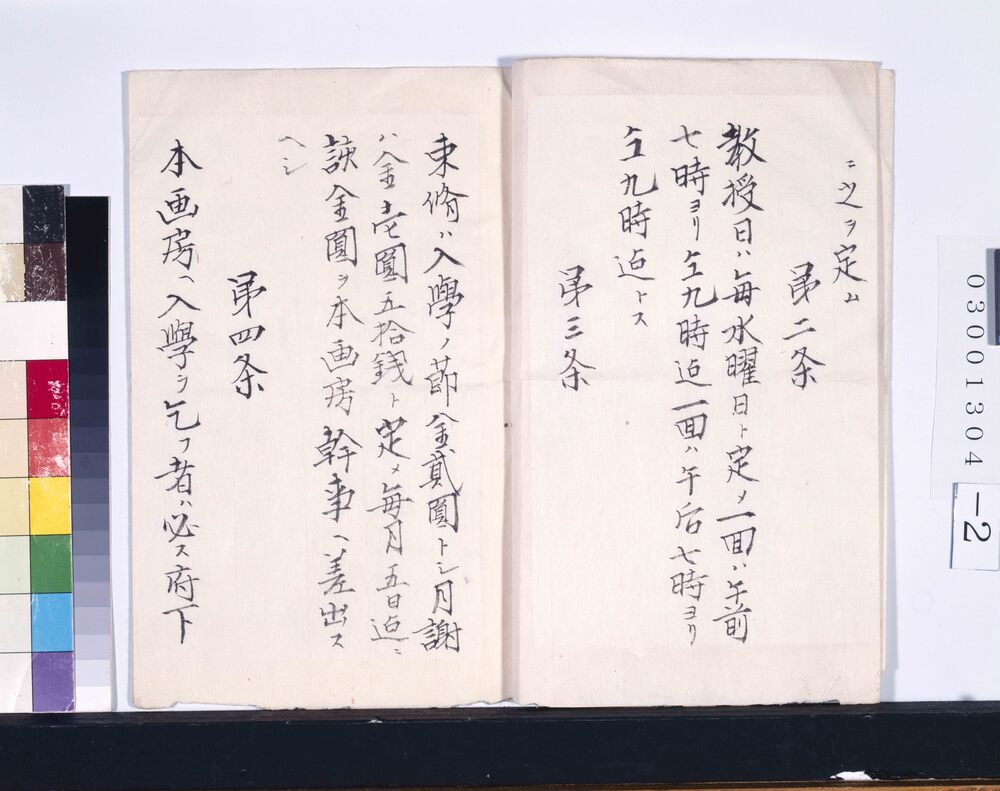 ニ之ヲ定ム
第二条
教授日ハ毎水曜日ト定メ一面ハ午前
七時ヨリ仝九時迠一面ハ午后七時ヨリ
仝九時迠トス
第三条
束脩ハ入學ノ節金貳圓トシ月謝
ハ金壱圓五拾銭ト定メ毎月五日迠ニ
該金圓ヲ本画房幹事ヘ差出ス
ヘシ
第四条
本画房ヘ入學ヲ乞フ者ハ必ス府下
03001304
-2